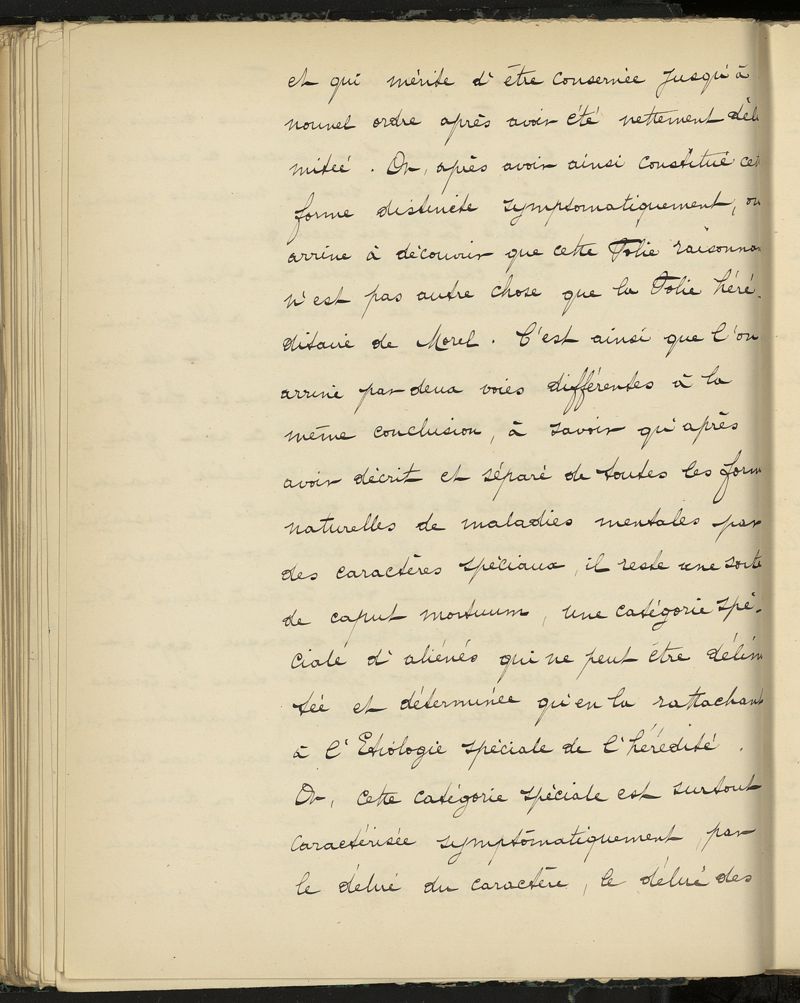 et qui mérite d'être conservée jusqu'à
nouvel ordre après avoir été nettement déli
mitée. Or, après avoir ainsi constitué cet
forme distincte symptomatiquement, on
arrive à découvrir que cette Folie raisonnan
n'est pas autre chose que la Folie héré-
ditaire de Morel. C'est ainsi que l'on
arrive par deux voies différentes à la
même conclusion, à savoir qu'après
avoir décrit et séparé de toutes les form
naturelles de maladies mentales par
des caractères spéciaux, il reste une sorte
de caput mortuum, une catégorie spé-
ciale d'aliénés qui ne peut être délim
tée et déterminée qu'en la rattachant
à l'Etiologie spéciale de l'hérédité.
Or, cette catégorie spéciale est surtout
caractérisée symptômatiquement, par
le délire du caractère, le délire des